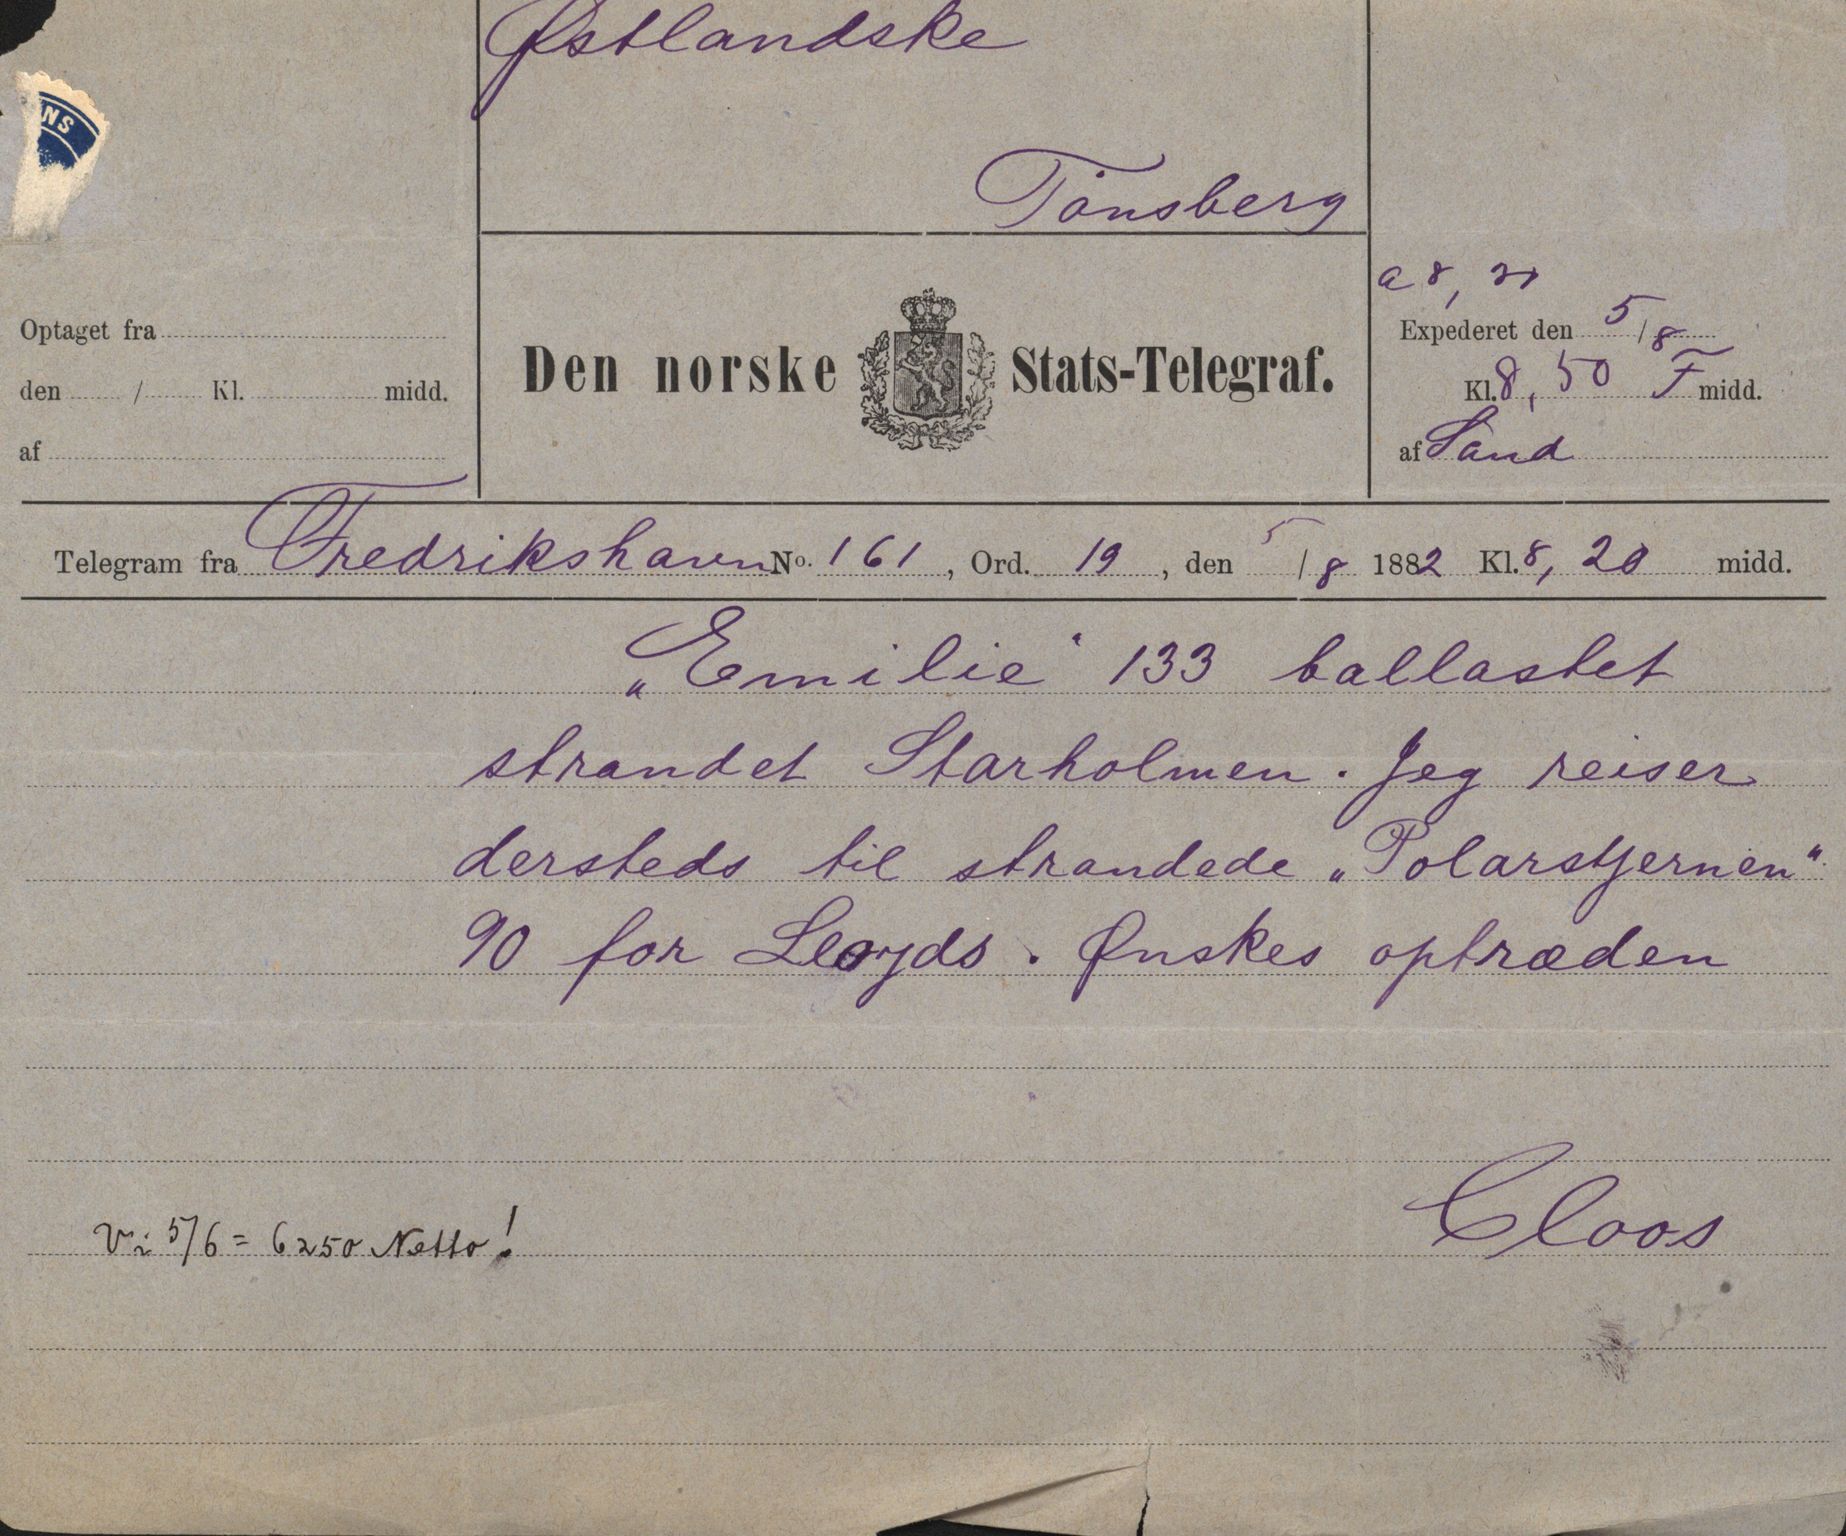 Østlandske
NS
Tönsberg
a 8, 31
Optaget fra
Expederet den 5/8
den / Kl. midd.
Den norske Stats-Telegraf.
Kl. 8, 50 F midd.
af
af Sand
Telegram fra Fredrikshavn No. 161, Ord. 19, den 5/8 1882 Kl. 8, 20 midd.
„Emilie“ 133 ballastet
strandet Starholmen. Jeg reiser
dersteds til strandede „Polarstjernen“
90 for Lloyds. Ønskes optræden
Cloos
Vi 5/6 = 6250 Netto!